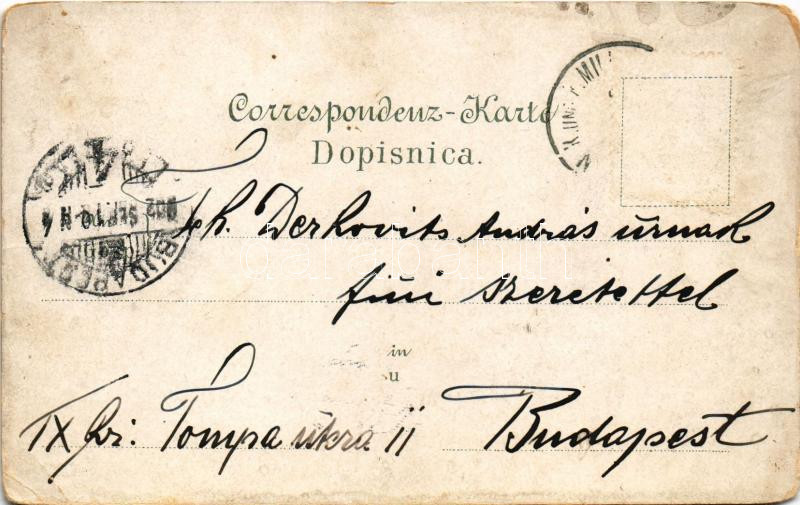 Correspondenz-Karte
Dopisnica.
Derkovits András úrnak
fiúi szeretettel
in
u
IX ker: Tompa utcza 11 Budapest
BUDAPEST
902 SEP